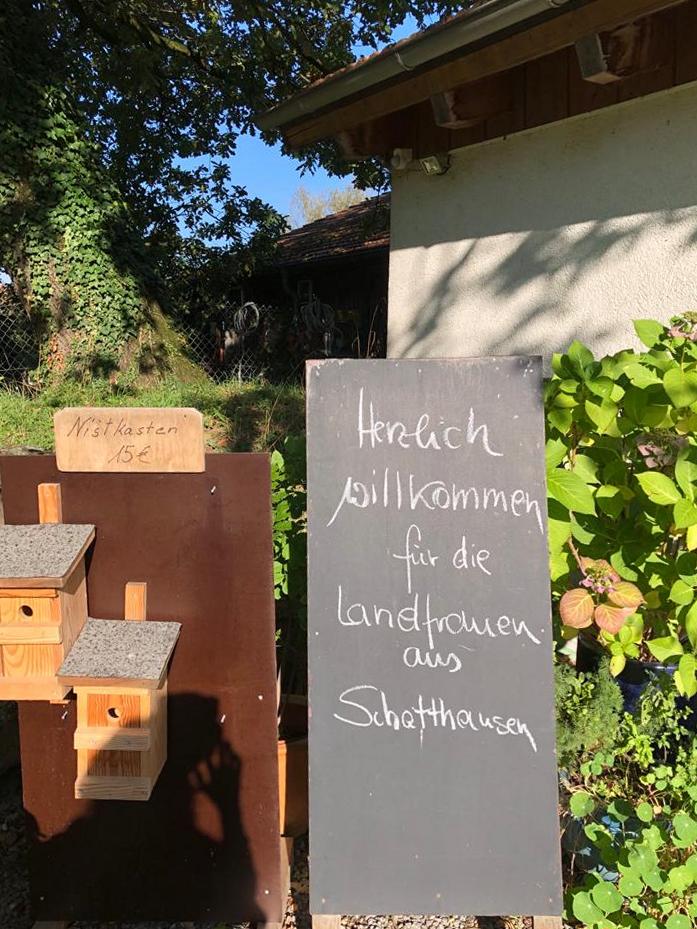 Nistkasten
15€
Herzlich
willkommen
für die
Landfrauen
aus
Schaffhausen